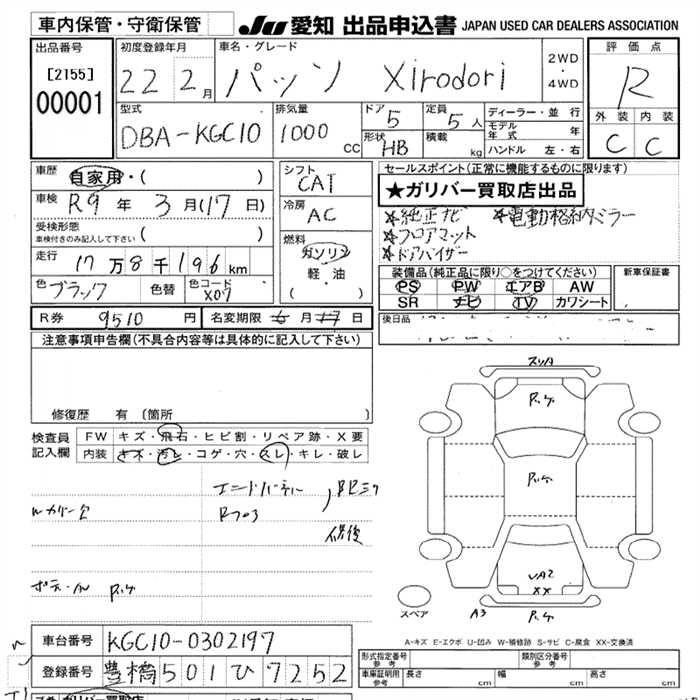 車内保管・守衛保管
JU 愛知 出品申込書 JAPAN USED CAR DEALERS ASSOCIATION
出品番号
[2155]
00001
初度登録年月
22 2月
車名・グレード
パッソ Xirodori
2WD
・
4WD
評価点
R
外装 内装
C C
型式
DBA-KGC10
排気量
1000 CC
ドア
5
定員
5人
形状
HB
積載
kg
ディーラー・並行
モデル年式 年
ハンドル 左・右
車歴 自家用・( )
車検 R9年 3月(17日)
受検形態
車検付きのみ記入して下さい ( )
走行 17万8千196km
色 ブラック 色替 色コード X07
シフト
CAT
冷房
AC
燃料
ガソリン
軽・油
( )
セールスポイント(正常に機能するものに限ります)
★ガリバー買取店出品
純正ナビ 電動格納ミラー
フロアマット
ドアバイザー
装備品(純正品に限り○をつけてください)
PS PW エアB AW
SR ナビ TV カワシート
新車保証書
後日品
R券 9510円 名変期限 月 日
注意事項申告欄(不具合内容等は具体的に記入して下さい)
修復歴 有 〔箇所 〕
検査員
記入欄
FW キズ・飛石・ヒビ割・リペア跡・X要
内装 キズ・汚レ・コゲ・穴・スレ・キレ・破レ
エンドパネル
スリA
VA2
XX
A3
スペア
A-キズ E-エクボ U-凹み W-補修跡 S-サビ C-腐食 XX-交換済
車台番号 KGC10-0302197
登録番号 豊橋501ひ7252
形式指定番号
参考
類別区分番号
参考
車庫証明用
参考
長さ cm 幅 cm 高さ cm
ガリバー買取店